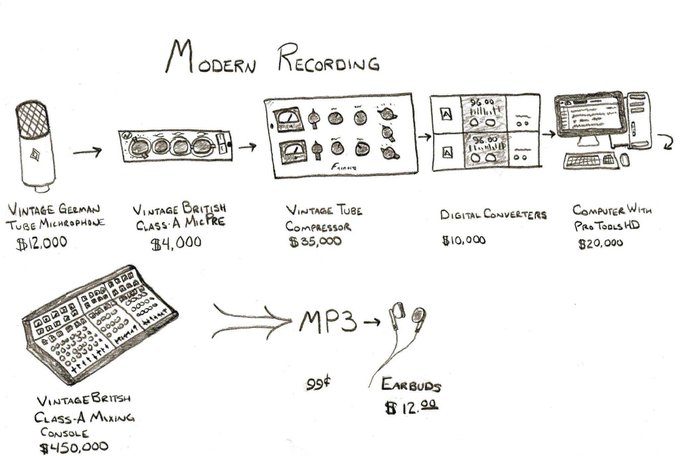 MODERN RECORDING
96.00
96.00
FAIRCHILD
VINTAGE GERMAN
TUBE MICHROPHONE
$12,000
VINTAGE BRITISH
CLASS-A MIC PRE
$4,000
VINTAGE TUBE
COMPRESSOR
$35,000
DIGITAL CONVERTERS
$10,000
COMPUTER WITH
PRO TOOLS HD
$20,000
MP3
99¢
EARBUDS
$12.00
VINTAGE BRITSH
CLASS-A MIXING
CONSOLE
$450,000